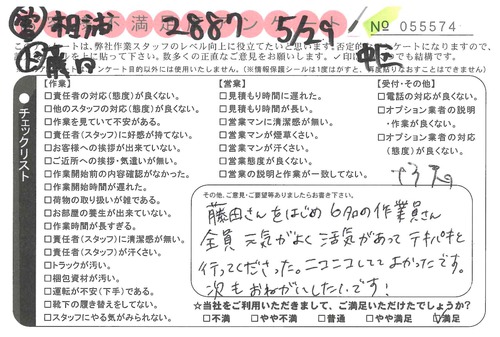 営 相浦 2887 5/29 № 055574
藤田
不満足 ンケー
ケートは、弊社作業スタッフのレベル向上に役立てたいと思います。否定的
ケートになりますので、
を上に貼って下さい。数多くの正直なご意見をお願いします。✓印
でも結構です。
アンケート目的以外には使用いたしません。(※情報保護シールは1度はがすと、再度貼りなおすことはできません)
チェックリスト
【作業】
□責任者の対応(態度)が良くない。
□他のスタッフの対応(態度)が良くない。
□作業を見ていて不安がある。
□責任者(スタッフ)に好感が持てない。
□お客様への挨拶が出来ていない。
□ご近所への挨拶・気遣いが無い。
□作業開始前の内容確認がなかった。
□作業開始時間が遅れた。
□荷物の取り扱いが雑である。
□お部屋の養生が出来ていない。
□作業時間が長すぎる。
□責任者(スタッフ)に清潔感が無い。
□責任者(スタッフ)が汗くさい。
□トラックが汚い。
□梱包資材が汚い。
□運転が不安(下手)である。
□靴下の履き替えをしてない。
□スタッフにやる気がみられない。
【営業】
□見積もり時間に遅れた。
□見積もり時間が長い。
□営業マンに清潔感が無い。
□営業マンが煙草くさい。
□営業マンが汗くさい。
□営業態度が良くない。
□営業の説明と作業が一致してない。
【受付・その他】
□電話の対応が良くない。
□オプション業者の説明
・作業が良くない。
□オプション業者の対応
(態度)が良くない。
その他、ご意見・ご要望等ありましたらお書き下さい。
藤田さんをはじめ6名の作業員さん
全員 元気がよく 活気があって テキパキと
行ってくださった。ニコニコしててよかったです。
次もおねがいしたいです!
☆当社をご利用いただきまして、ご満足いただけたでしょうか?
□不満 □やや不満 □普通 □やや満足 ☑満足